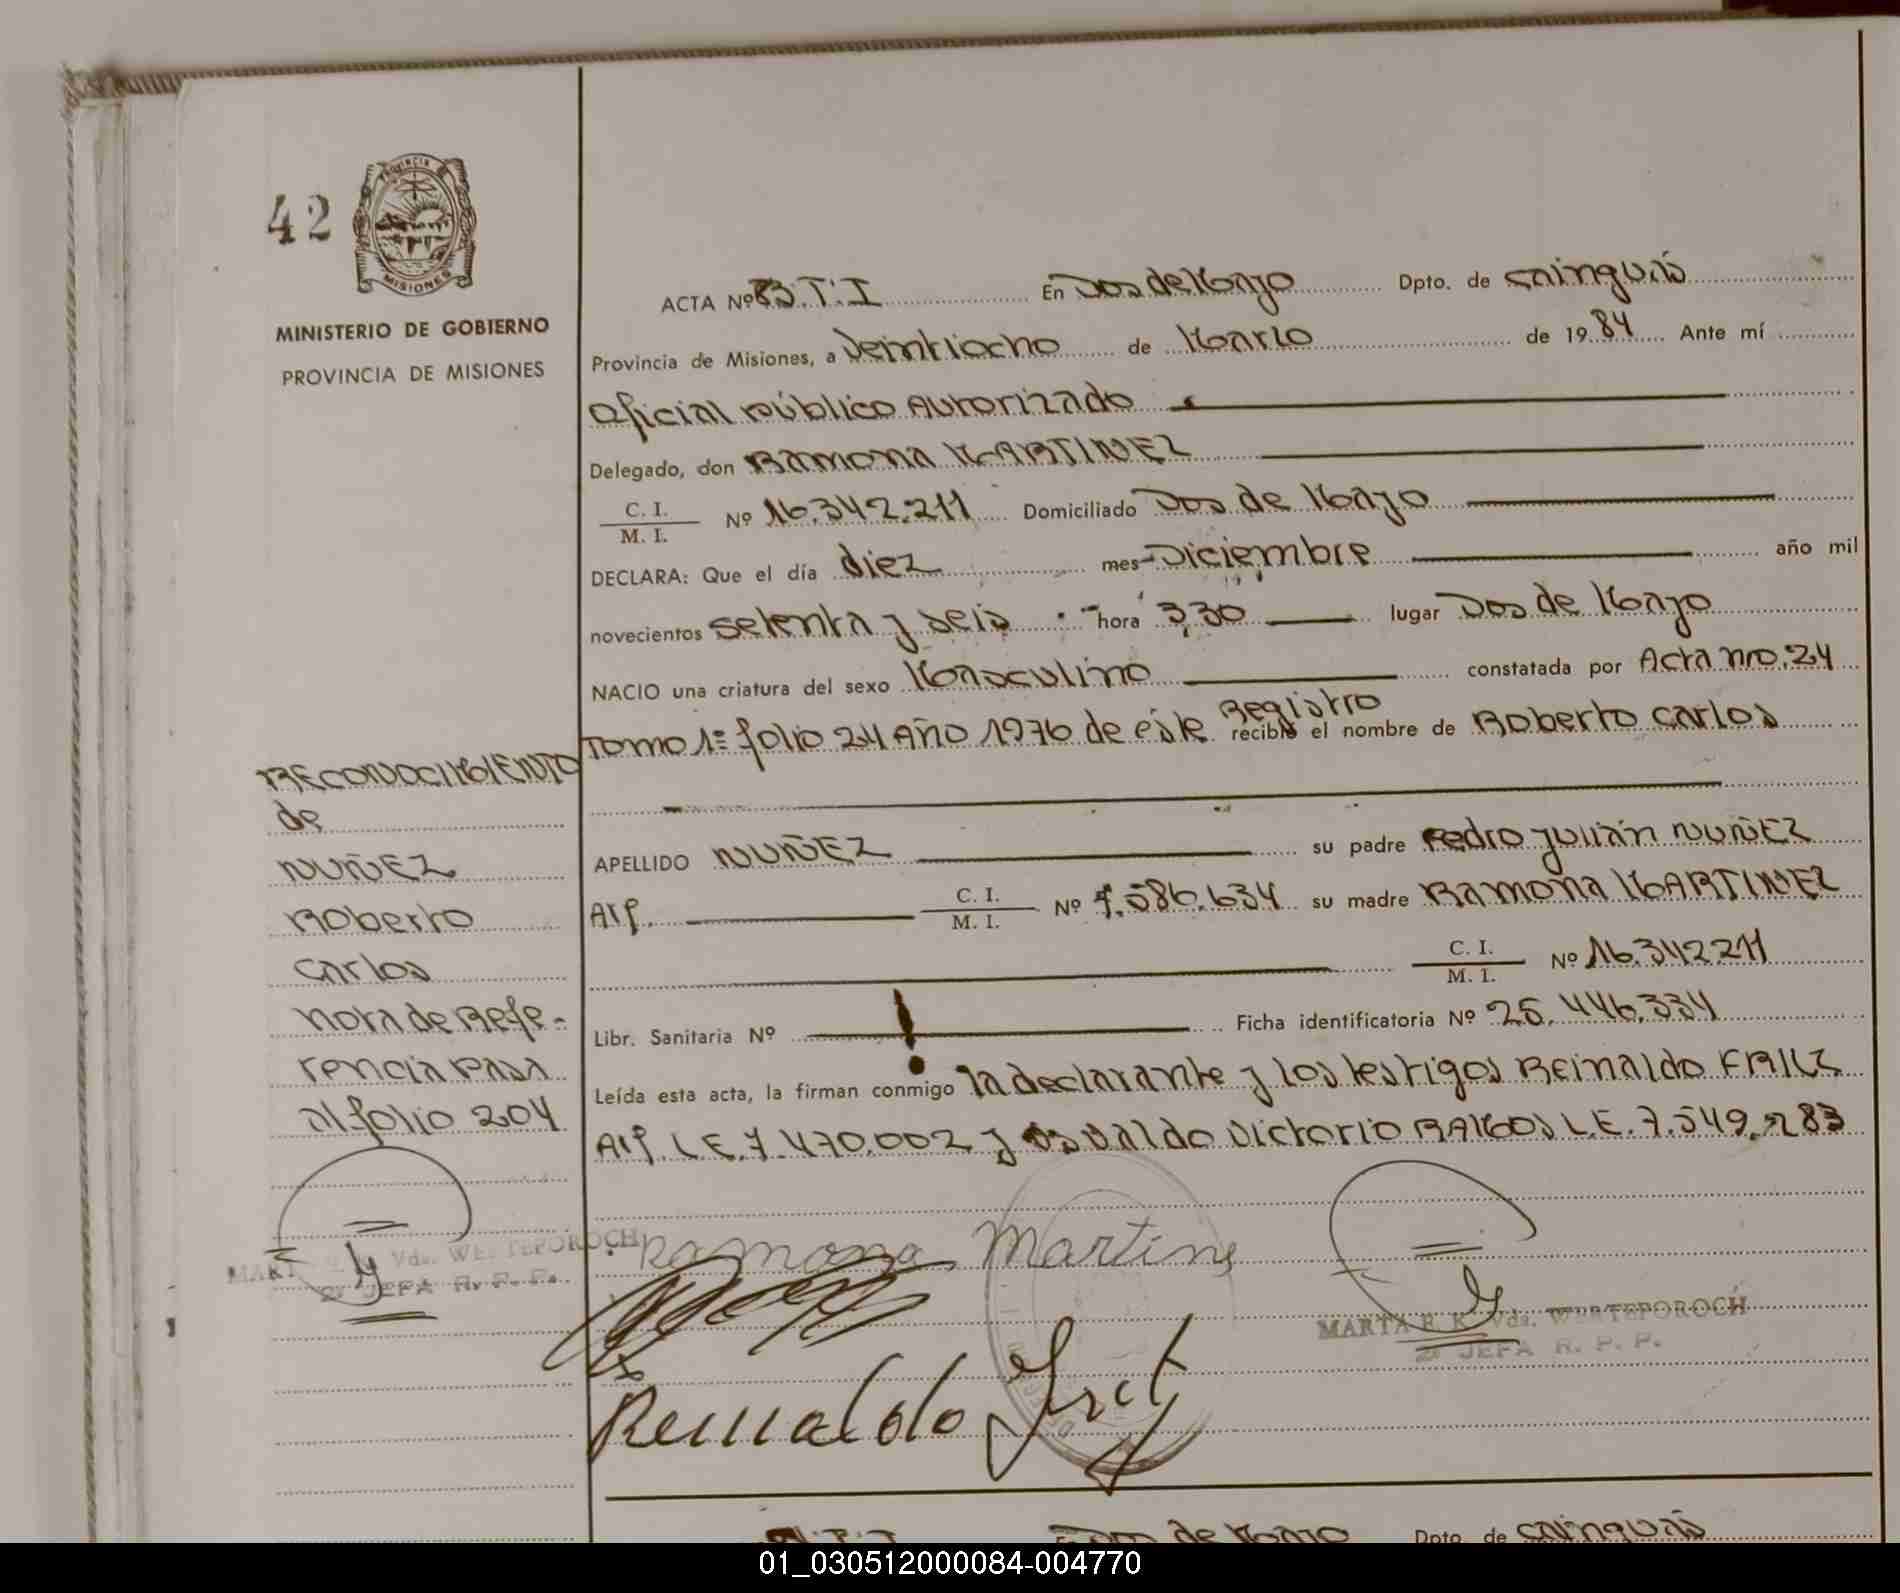 42
PROVINCIA
MISIONES
MINISTERIO DE GOBIERNO
PROVINCIA DE MISIONES
ACTA Nº 83.T.I En Dos de Mayo Dpto. de Cainguás
Provincia de Misiones, a Veintiocho de Marzo de 1984 Ante mí
Oficial Público Autorizado
Delegado, don Ramona MARTINEZ
C. I.
M. I. Nº 16.342.211 Domiciliado Dos de Mayo
DECLARA: Que el día diez mes Diciembre año mil
novecientos setenta y seis hora 3,30 lugar Dos de Mayo
NACIO una criatura del sexo Masculino constatada por Acta nro. 24
Tomo 1º folio 24 Año 1976 de este Registro recibió el nombre de Roberto Carlos
APELLIDO NUÑEZ su padre Pedro Julián NUÑEZ
Arg. C. I.
M. I. Nº 7.586.634 su madre Ramona MARTINEZ
C. I.
M. I. Nº 16.342.211
Libr. Sanitaria Nº Ficha identificatoria Nº 25.446.334
Leída esta acta, la firman conmigo la declarante y los testigos Reinaldo
Arg. L.E. 7.470.002 y Osvaldo Victorio RAMOS L.E. 7.549.283
RECONOCIMIENTO
de
NUÑEZ
Roberto
Carlos
Nota de Refe-
rencia pasa
al folio 204
MARTA Vda. WERTEPOROCH
2ª JEFA R. P. P.
Ramona Martine
MARTA R. K. Vda. WERTEPOROCH
2ª JEFA R. P. P.
Reinaldo
T.I Dos de Mayo Dpto. de Cainguás
01_030512000084-004770